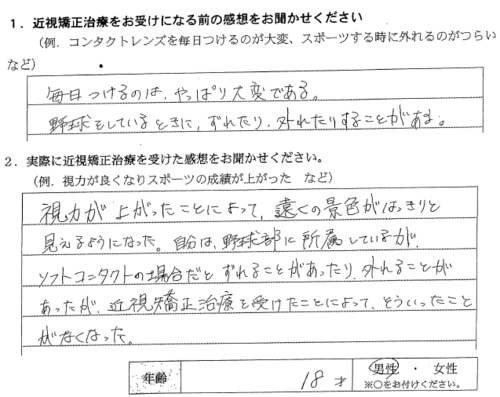 1．近視矯正治療をお受けになる前の感想をお聞かせください
（例．コンタクトレンズを毎日つけるのが大変、スポーツする時に外れるのがつらい
など）
毎日つけるのは、やっぱり大変である。
野球をしているときに、ずれたり、外れたりすることがある。
2．実際に近視矯正治療を受けた感想をお聞かせください。
（例．視力が良くなりスポーツの成績が上がった　など）
視力が上がったことによって、遠くの景色がはっきりと
見えるようになった。自分は、野球部に所属しているが、
ソフトコンタクトの場合だと ずれることがあったり、外れることが
あったが、近視矯正治療を受けたことによって、そういったこと
がなくなった。
年齢　18才　男性　・　女性
※○をお付けください。